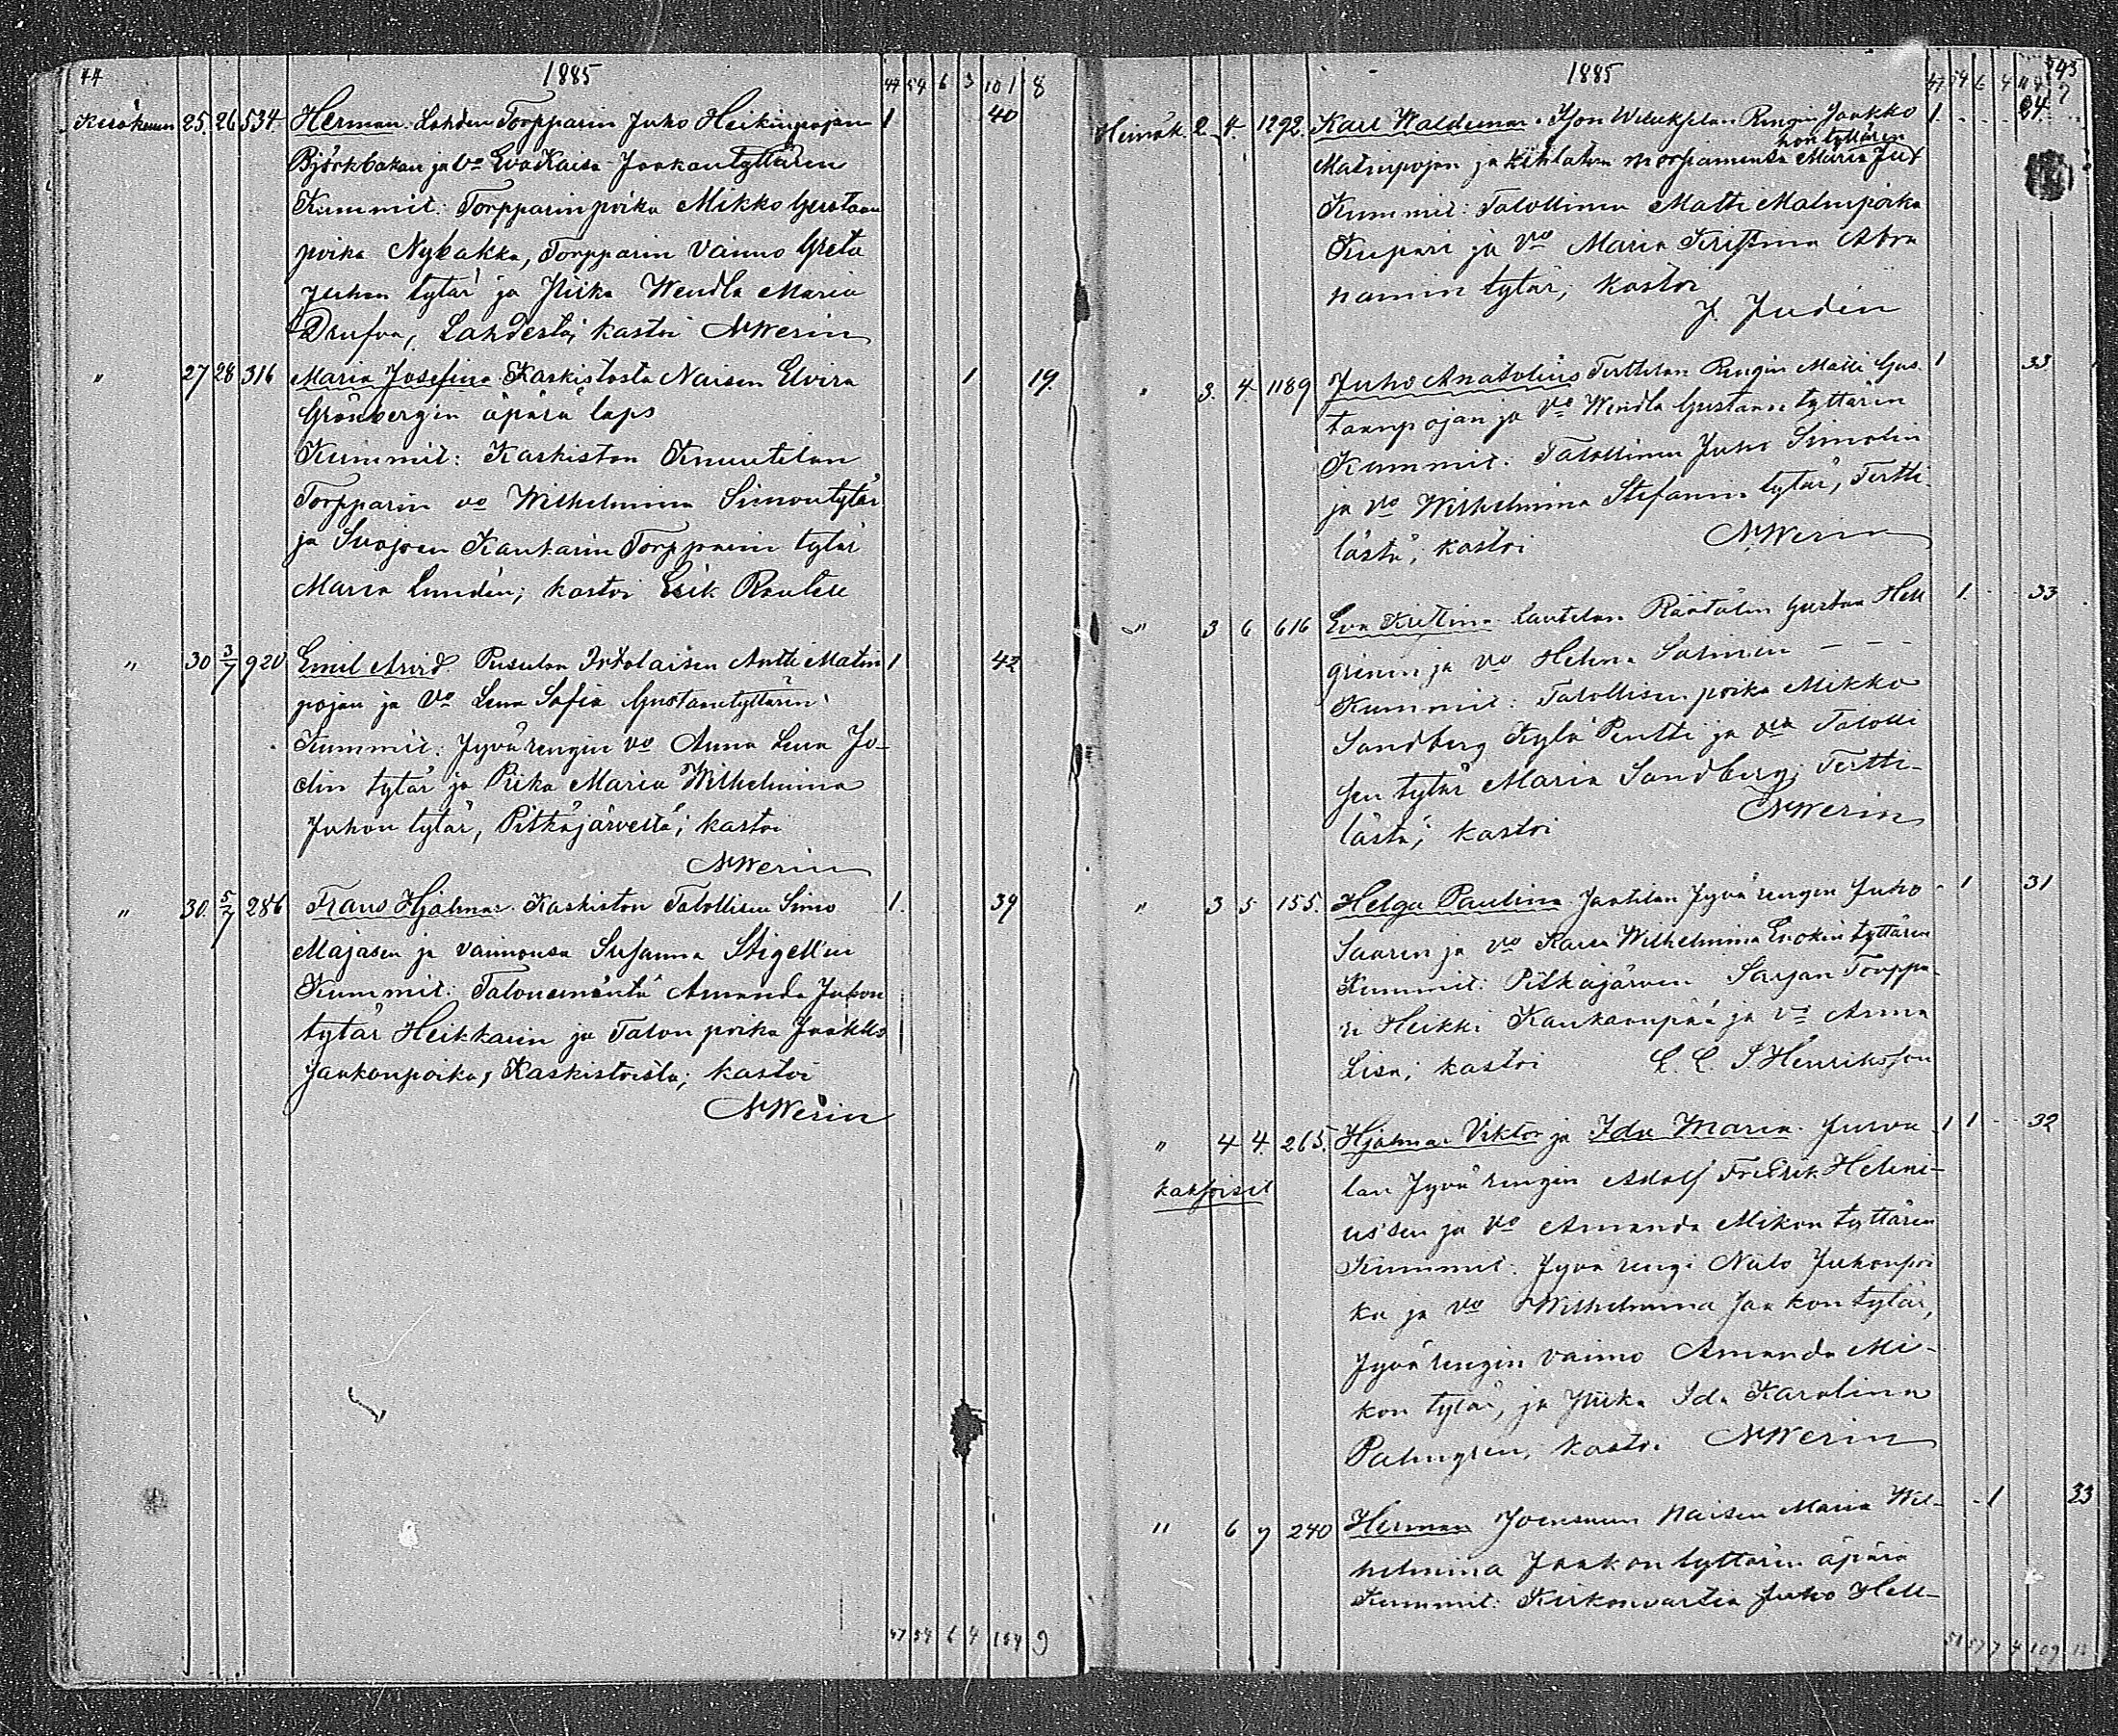 44 1885 44 54 6 3 101 8
Kesäkuun 25. 26 534 Herman. Lahden Torpparin Juho Heikinpojan 1 40
Björkbakan ja Vo Eva Kaisa Jaakontyttären
Kummit: Torpparinpoika Mikko Gustaan
poika Nybakka, Torpparin Vaimo Greta
Juhon tytär ja Piika Wendla Maria
Drufva, Lahdesta; kastoi NWerin
" 27 28 316 Maria Josefina Kaskistosta Naisen Elvira 1 19.
Grönbergin äpärä laps
Kummit: Karkiston Knuutilan
Torpparin vo Wilhelmina Simontytär
ja Suojoen Kankarin Torpparin tytär
Maria Lundén; kastoi Erik Rautell
" 30 3/7 920 Emil Arvid. Pusulan Itsolaisen Antti Matin 1 42
pojan ja Vo Lena Sofia Gustaantyttären
Kummit: Jyvärengin vo Anna Lena Jo-
elin tytär ja Piika Maria Wilhelmina
Juhon tytär, Pitkäjärveltä; kastoi
NWerin
" 30. 5/7 286 Frans Hjalmar. Kaskiston Talollisen Simo 1. 39
Majasen ja vaimonsa Susanna Stigell'in
Kummit: Talonemäntä Amanda Juhon
tytär Heikkarin ja Talon poika Jaakko
Jaakonpoika, Kaskistoista; kastoi
NWerin
47 54 6 4 104 9
1885 47 54 6 4 104 9
Heinäk. 2. 4. 1292. Karl Waldemar. Ison Rengin Jaakko 1 34
hontyttären
Matinpojan ja kihlatun morsiamensa Maria Ju
Kummit: Talollinen Matti Matinpoika
Kupari ja Vo Maria Kristina Abra
hamin tytär; kastoi
J. Judin
" 3. 4. 1189 Juho Anatolius Terttilän Rengin Matti Gus- 1 33
taanpojan ja Vo Wendla Gustaan tyttären
Kummit: Talollinen Juho Simolin
ja Vo Wilhelmina Stefanin tytär, Tertti-
lästä; kastoi NWerin
" 3 6 616 Eva Kristina. Lautelan Räätälin Gustaa Hell 1. 33
grenin ja Vo Helena Salmen
Kummit: Talollisen poika Mikko
Sandberg Kylä Pentti ja Talolli
sen tytär Maria Sandberg; Tertti-
lästä; kastoi NWerin
" 3 5 155. Helga Paulina Jantilan Jyvä rengin Juho 1 31
Saaren ja Vo Kaisa Wilhelmina Enokin tyttären
Kummit: Pitkäjärven Sarjan Torppa-
ri Heikki Kankaanpää ja Vo Anna
Lisa; kastoi L. L. S. Henriksson
" 4 4. 265. Hjalmar Viktor ja Ida Maria. Jurva 1 1 32
kaksoiset lan Jyvä rengin Adolf Fredrik Heleni-
us'sen ja Vo Amanda Mikon tyttären
Kummit: Jyvä rengi Niilo Juhonpoi
ka ja Vo Wilhelmina Jaakon tytär,
Jyvä rengin vaimo Amanda Mi-
kon tytär, ja Piika Ida Karolina
Palmgren, kastoi NWerin
" 6 9 240 Herman Joensuun Naisen Maria Wil- 1 33
helmina Jaakon tyttären äpärä
Kummit: Kirkonvartia Juho Hell-
51 57 7 4 109